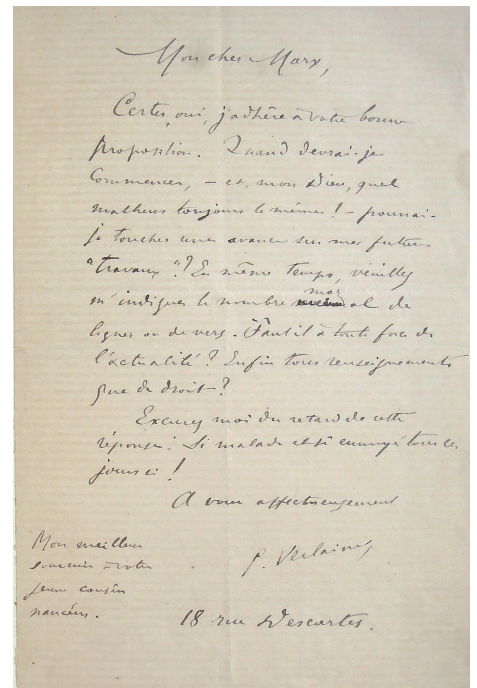 Mon cher Marx,
Certes, oui, j'adhère à votre bonne
proposition. Quand devrai-je
commencer, – et, mon Dieu, quel
malheur toujours le même ! – pourrai-
je toucher une avance sur mes futurs
"travaux" ? En même temps, veuillez
m'indiquer le nombre maximal de
lignes ou de vers. Faut il à toute force de
l'actualité ? Enfin tous renseignements
que de droit ?
Excusez moi du retard de cette
réponse. Si malade et si ennuyé tous ces
jours ci !
A vous affectueusement
P. Verlaine
Mon meilleur
souvenir à votre
jeune cousin
nancéen.
18 rue Descartes.